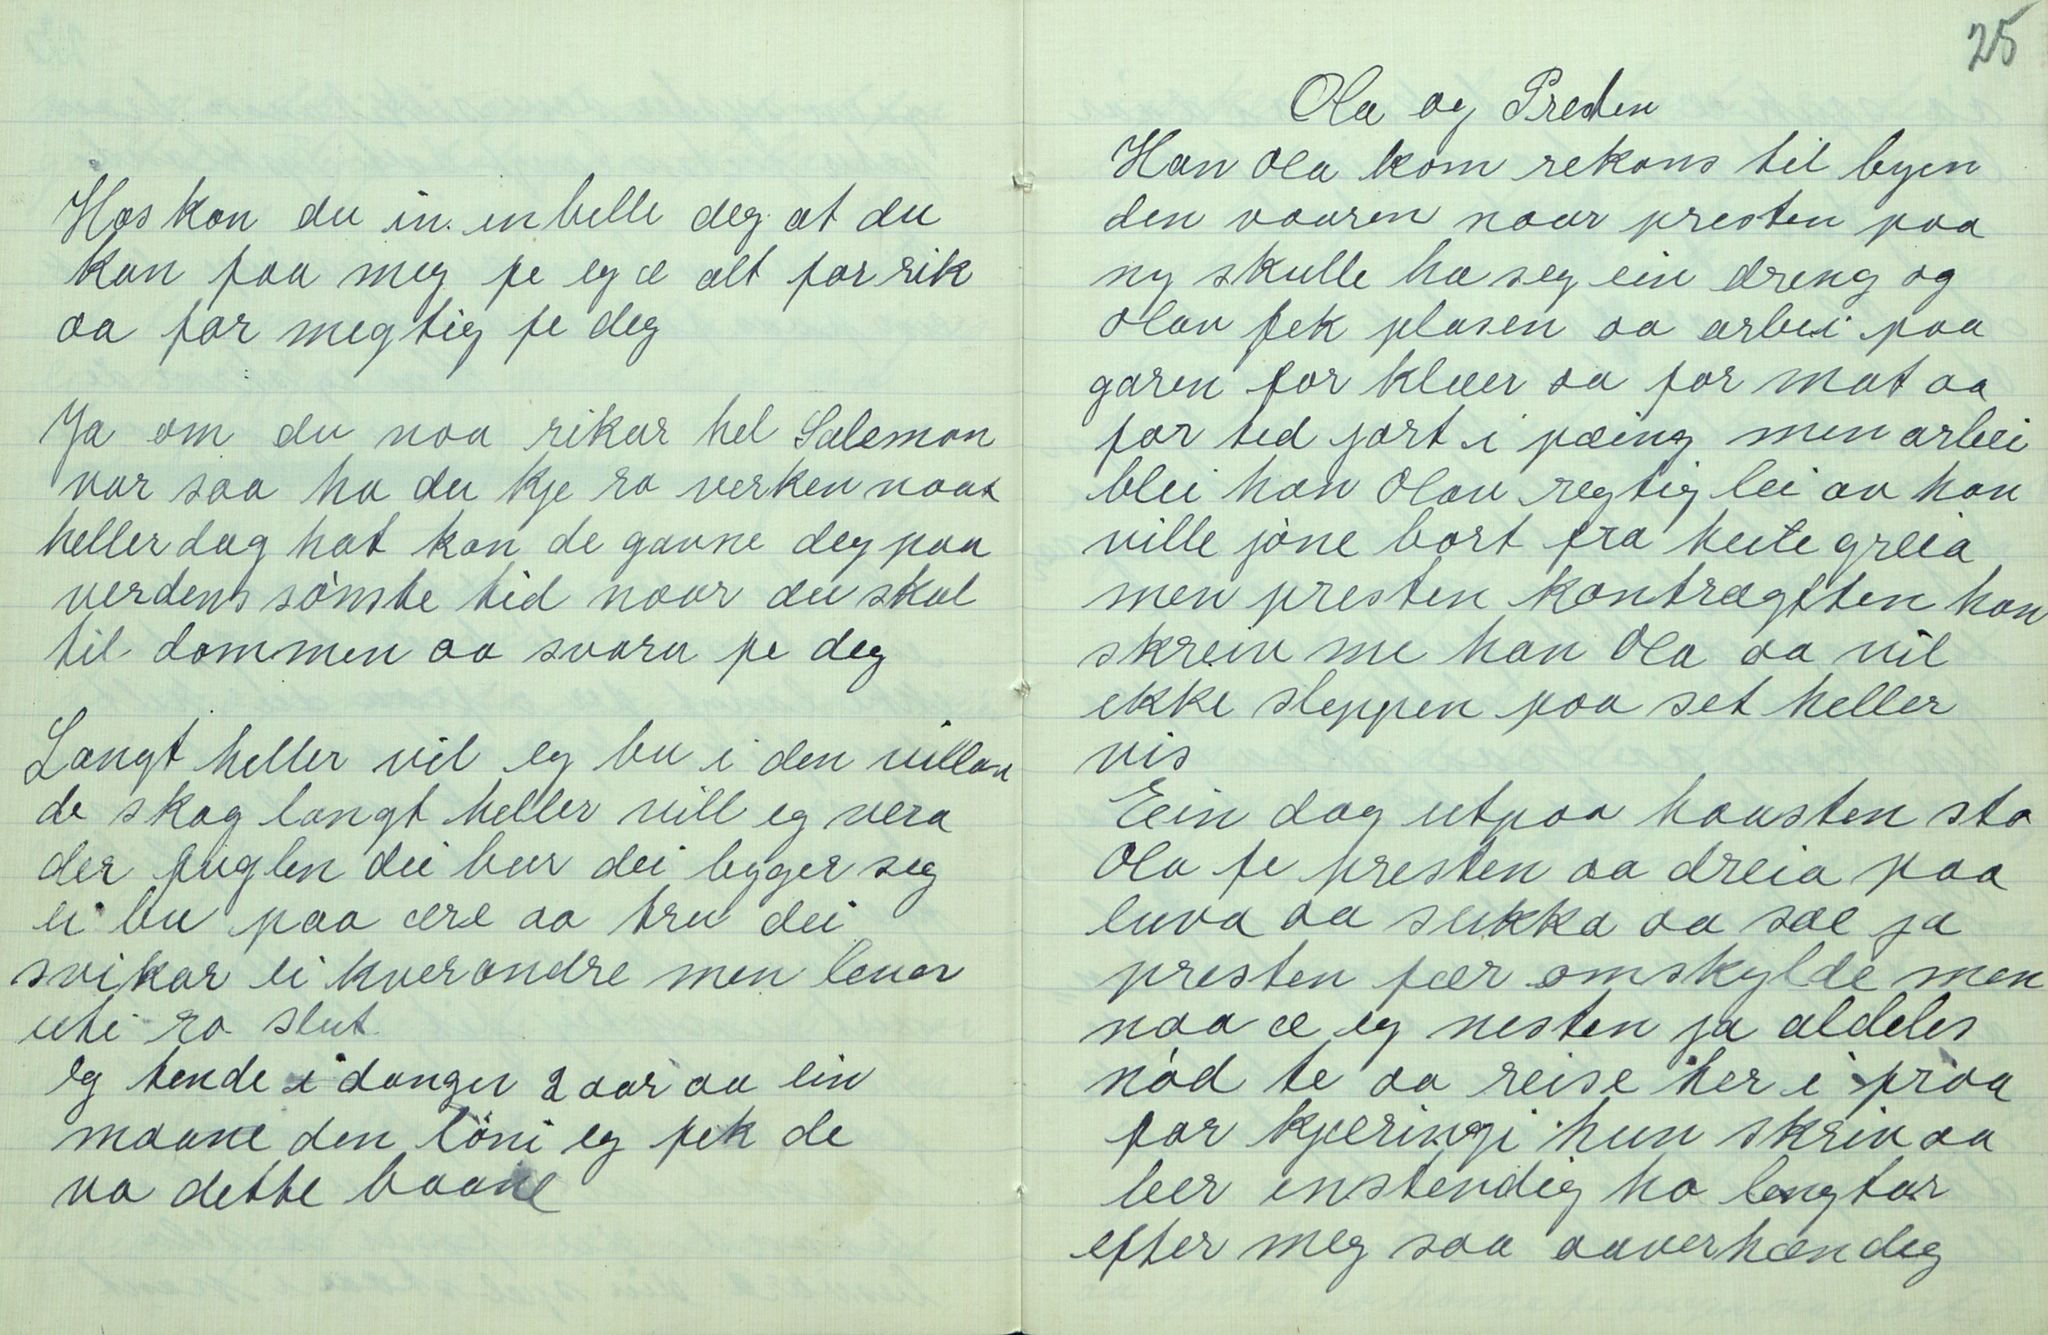 Hos kan du in. enbelle deg at du
kan faa meg fe eg æ alt for rik
aa for megtig fe deg
Ja om du naa rikar hel Salemon
var saa ha du kje ro verken naat
heller dag hat kan de gavne deg paa
verdens sønste tid naar du skal
til dommen aa svara fe deg
Langt heller vil eg bu i den villan
de skog langt heller vill eg vera
der fuglen dei bur dei bygger seg
ei bu paa ære aa tru dei
svikar ei kverandre men lever
uti ro slut.
eg tende i danger 2 aar aa ein
maane den löni eg fek de
va dette baane
25
Ola og Presten
Han Ola kom rekans til byen
den vaaren naar presten paa
ny skulle ha seg ein dreng og
Olav fek plasen aa arbei paa
garen for klæer aa for mat aa
for ted fort i pæing men arbei
blei han Olav regtig lei av han
ville jöne bort fra heite greia
men presten kontragtten han
skreiv me han Ola aa vil
ekke sleppen paa set heller
vis
Eein dag utpaa haasten sto
Ola fe presten aa dreia paa
luva aa sukka aa sae ja
presten fær omskylde men
naa æ eg nesten ja aldeles
nöd te aa reise her i fraa
for kjæringi hun skriv aa
beer enstendig ho lengtar
efter meg saa aaverhændig